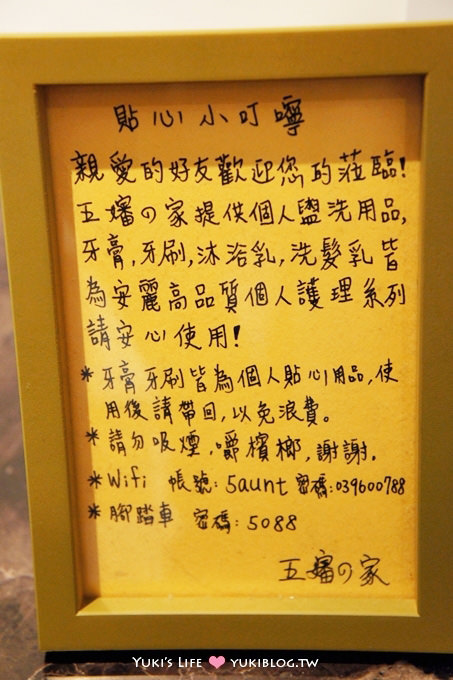 貼心小叮嚀
親愛的好友歡迎您的蒞臨!
五嬸の家提供個人盥洗用品,
牙膏,牙刷,沐浴乳,洗髮乳皆
為安麗高品質個人護理系列
請安心使用!
* 牙膏牙刷皆為個人貼心用品,使
用後請帶回,以免浪費。
* 請勿吸煙,嚼檳榔,謝謝.
* Wifi 帳號: 5aunt 密碼:039600788
* 腳踏車 密碼: 5088
五嬸の家
YUKI'S LIFE ♥ YUKIBLOG.TW